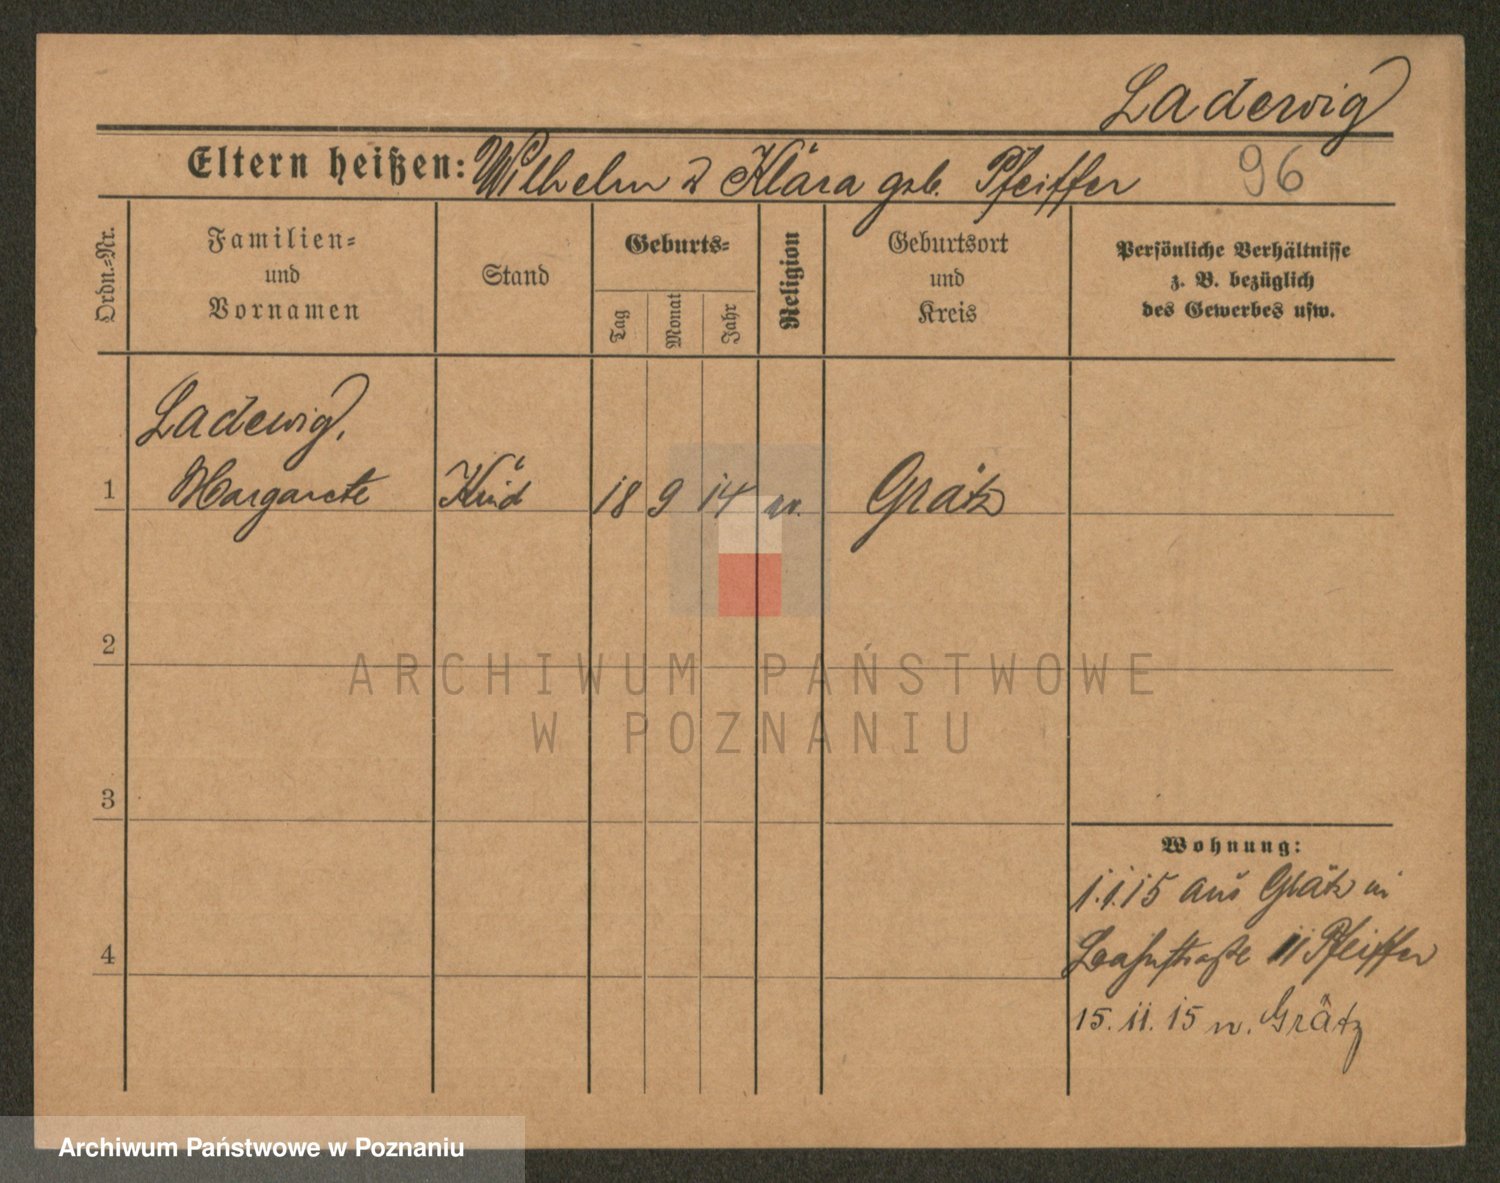 Ladewig
Eltern heißen: Wilhelm u Klara geb. Pfeiffer 96
Ordn.-Nr.
Familien-
und
Vornamen
Stand
Geburts-
Tag
Monat
Jahr
Religion
Geburtsort
und
Kreis
Persönliche Verhältnisse
z. B. bezüglich
des Gewerbes usw.
Ladewig,
1 Margarete Kind 18 9 14 ev. Grätz
2
3
4
Wohnung:
1.1.15 aus Grätz in
Bahnstraße 11 Pfeiffer
15.11.15 n. Grätz
ARCHIWUM PAŃSTWOWE
W POZNANIU
Archiwum Państwowe w Poznaniu